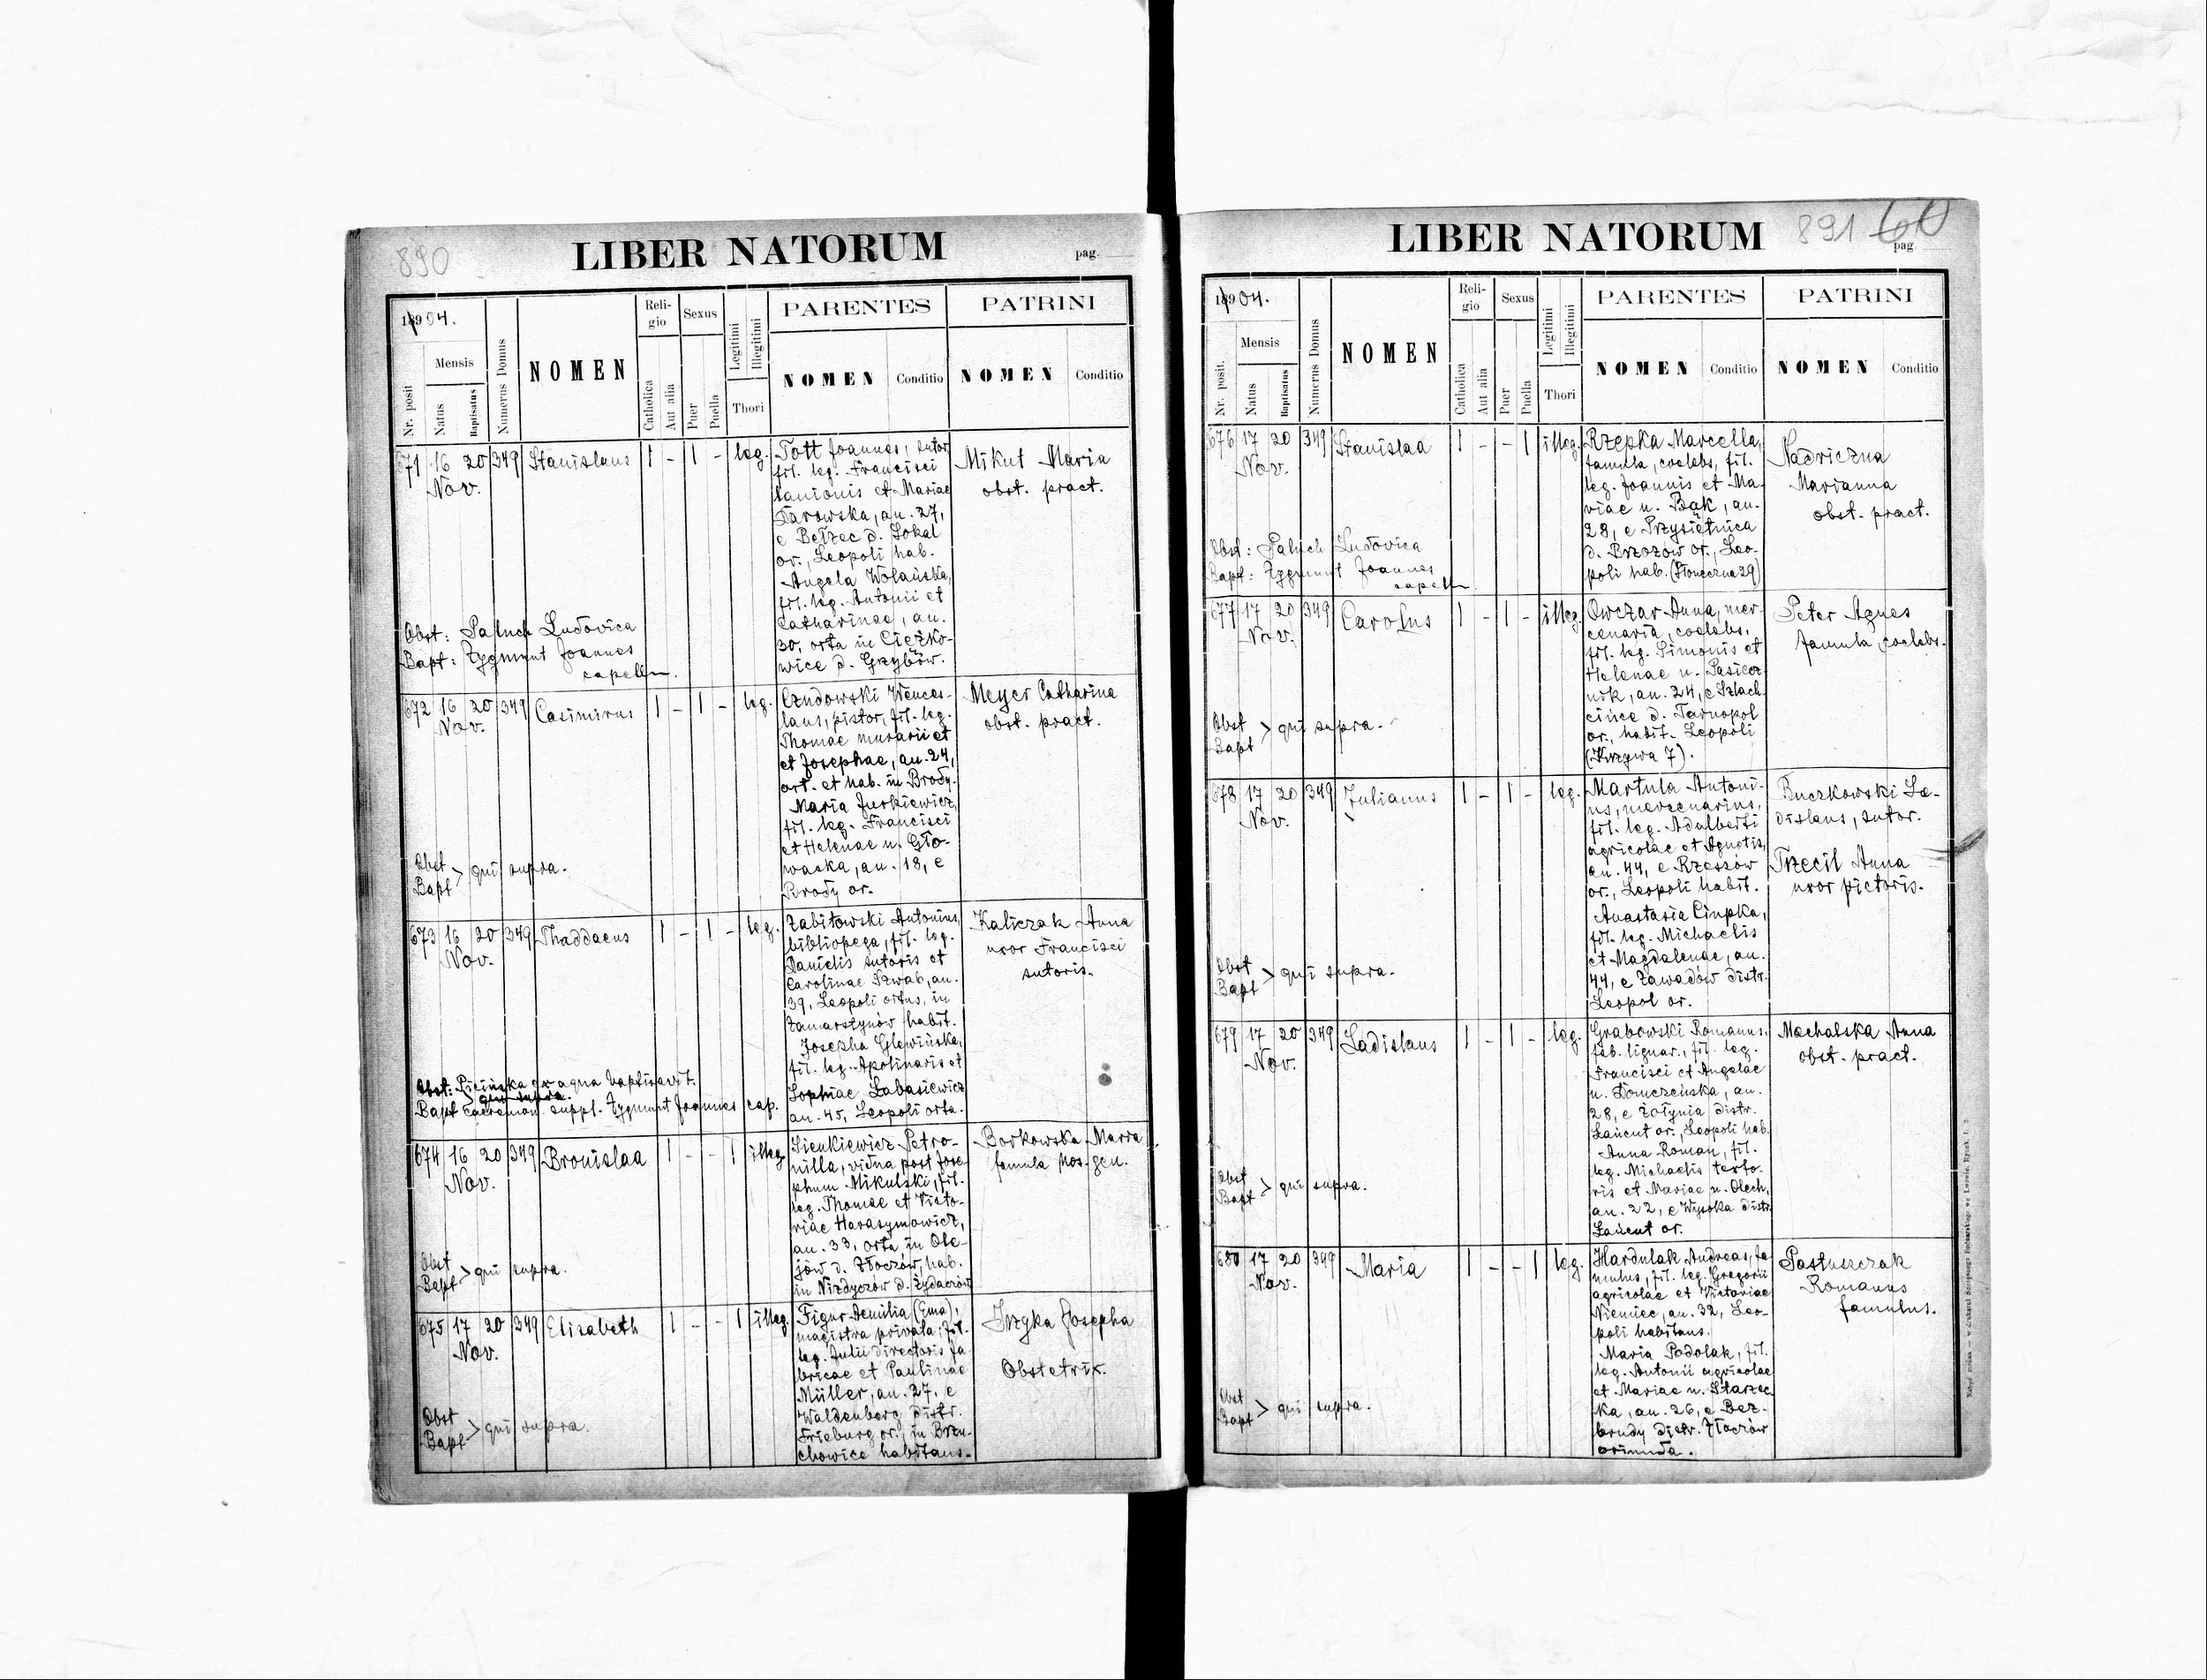 890
LIBER NATORUM
pag.
1904.
Reli-
gio
Sexus
Legitimi
Illegitimi
PARENTES
PATRINI
Nr. posit
Mensis
Natus
Baptisatus
Numerus Domus
NOMEN
Catholica
Aut alia
Puer
Puella
Thori
NOMEN
Conditio
NOMEN
Conditio
671 16 20 349 Stanislaus 1 - 1 - leg.
Nov.
Tott Joannes, sutor
fil. leg. Francisci
lanionis et Mariae
Tarowska, an. 27,
e Bełzec d. Sokal
or., Leopoli hab.
Angela Wolańska,
fil. leg. Antonii et
Catharinae, an.
30, orta in Ciężko-
wice d. Grzybów.
Mikut Maria
obst. pract.
Obst: Paluch Ludovica
Bapt: Zygmunt Joannes
capellan.
672 16 20 349 Casimirus 1 - 1 - leg.
Nov.
Czudowski Wences-
laus, pistor, fil. leg.
Thomae murarii et
et Josephae, an. 24,
ort. et hab. in Brody.
Maria Jurkiewicz,
fil. leg. Francisci
et Helenae n. Gło-
wacka, an. 18, e
Brody or.
Meyer Catharina
obst. pract.
Obst
Bapt > qui supra.
673 16 20 349 Thaddaeus 1 - 1 - leg.
Nov.
Zabitowski Antonius,
bibliopega, fil. leg.
Danielis sutoris et
Carolinae Szwab, an.
39, Leopoli ortus, in
Zamarstynów habit.
Josepha Glewińska,
fil. leg. Apolinaris et
Sophiae Labasiewicz
an. 45, Leopoli orta.
Kaliczak Anna
uxor Francisci
sutoris.
Obst: Picińska ex aqua baptisavit.
qui supra.
Bapt caeremon. suppl. Zygmunt Joannes cap.
674 16 20 349 Bronislaa 1 - - 1 illeg.
Nov.
Sienkiewicz Petro-
nilla, vidua post Jose-
phum Mikulski, fil.
leg. Thomae et Victo-
riae Harasymowicz,
an. 33, orta in Ole-
jów d. Złoczów, hab.
in Nizdyczów d. Żydaczów
Borkowska Maria
famula hos. gen.
Obst
Bapt > qui supra.
675 17 20 349 Elisabeth 1 - - 1 illeg.
Nov.
Figur Aemilia (Ema),
magistra privata, fil.
leg. Julii directoris fa
bricae et Paulinae
Müller, an. 27, e
Waldenberg distr.
Frieburg or., in Brzu-
chowice habitans.
Iryka Josepha
Obstetrix.
Obst
Bapt > qui supra.
LIBER NATORUM
891 60
pag.
1904.
Reli-
gio
Sexus
Legitimi
Illegitimi
PARENTES
PATRINI
Nr. posit.
Mensis
Natus
Baptisatus
Numerus Domus
NOMEN
Catholica
Aut alia
Puer
Puella
Thori
NOMEN
Conditio
NOMEN
Conditio
676 17 20 349 Stanislaa 1 - - 1 illeg.
Nov.
Rzepka Marcella,
famula, coelebs, fil.
leg. Joannis et Ma-
riae n. Bąk, an.
28, e Przysietnica
d. Brzozów or., Leo-
poli hab. (Słoneczna 29)
Nadriczna
Marianna
obst. pract.
Obst: Paluch Ludovica
Bapt: Zygmunt Joannes
capellan.
677 17 20 349 Carolus 1 - 1 - illeg.
Nov.
Owczar Anna, mer-
cenaria, coelebs,
fil. leg. Simonis et
Helenae n. Pasiecz-
nik, an. 24, e Szlach
cińce d. Tarnopol
or., habit. Leopoli
(Krzywa 7).
Peter Agnes
famula coelebs.
Obst
Bapt > qui supra.
678 17 20 349 Julianus 1 - 1 - leg.
Nov.
Martula Antoni-
us, mercenarius,
fil. leg. Adalberti
agricolae et Agnetis,
an. 44, e Rzeszów
or., Leopoli habit.
Anastasia Ciupka,
fil. leg. Michaelis
et Magdalenae, an.
44, e Zawadów distr.
Leopol or.
Buczkowski La-
dislaus, sutor.
Trzecil Anna
uxor pictoris.
Obst
Bapt > qui supra.
679 17 20 349 Ladislaus 1 - 1 - leg.
Nov.
Grabowski Romanus,
fab. lignar., fil. leg.
Francisci et Angelae
n. Domczeńska, an.
28, e Żołynia distr.
Łańcut or., Leopoli hab.
Anna Roman, fil.
leg. Michaelis texto-
ris et Mariae n. Olech,
an. 22, e Wysoka distr.
Łańcut or.
Machalska Anna
obst. pract.
Obst
Bapt > qui supra.
680 17 20 349 Maria 1 - - 1 leg.
Nov.
Hardulak Andreas, fa-
mulus, fil. leg. Gregorii
agricolae et Victoriae
Niemiec, an. 32, Leo-
poli habitans.
Maria Podolak, fil.
leg. Antonii agricolae
et Mariae n. Starzec
ka, an. 26, e Bez-
brudy distr. Złoczów
oriunda.
Pastuszczak
Romanus
famulus.
Obst
Bapt > qui supra.